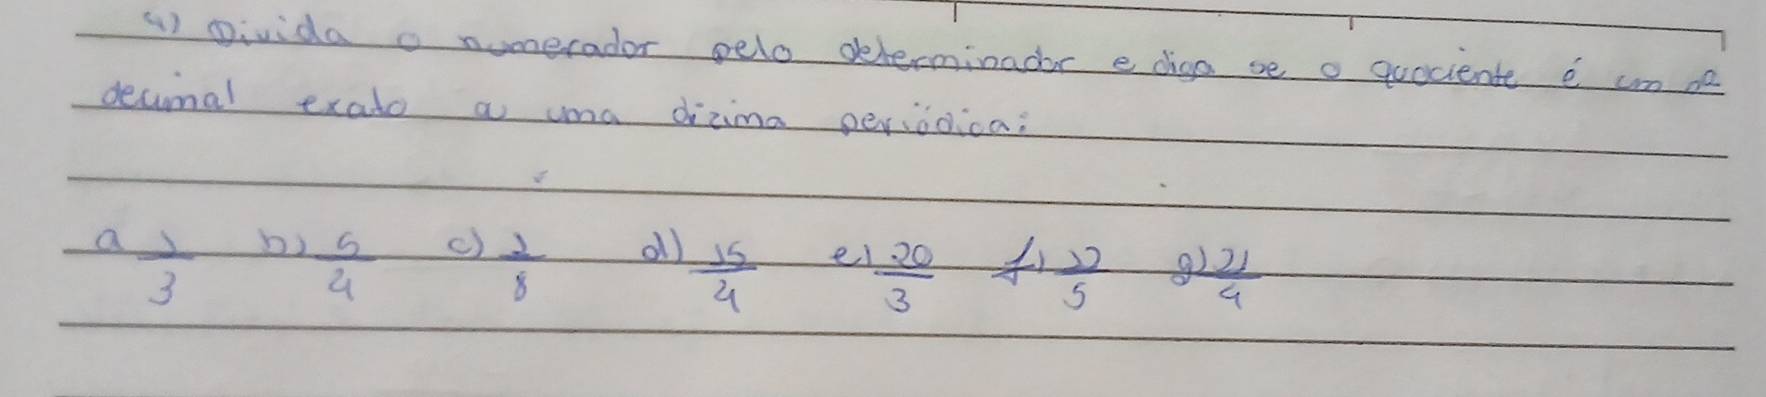 4) Divida o numerador pelo determinador e diga se o quociente é um nº
decimal exato ou uma dízima periódica:
a 1/3 b) 5/4 c) 1/8 d) 15/4 e) 20/3 f) 12/5 g) 21/4